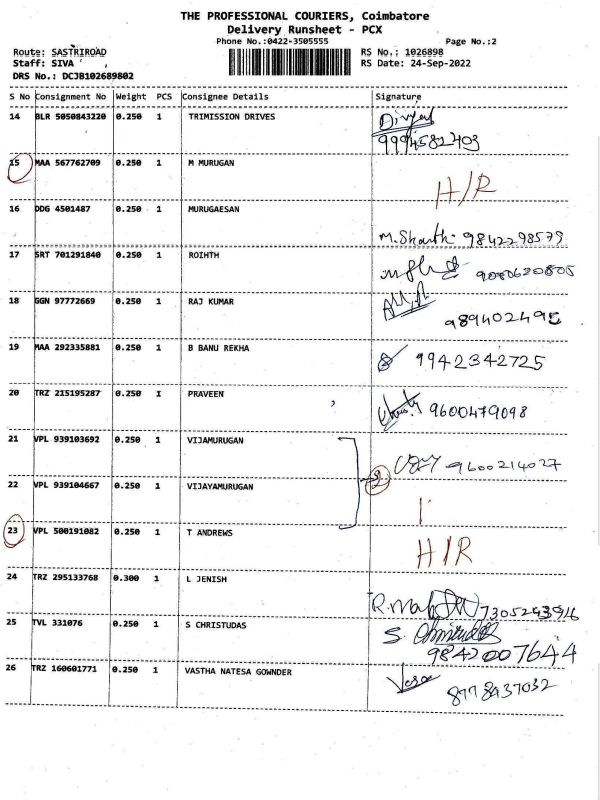 THE PROFESSIONAL COURIERS, Coimbatore
Delivery Runsheet - PCX
Phone No.:0422-3505555 Page No.:2
Route: SASTRIROAD RS No.: 1026898
Staff: SIVA RS Date: 24-Sep-2022
DRS No.: DCJB102689802
S No Consignment No Weight PCS Consignee Details Signature
14 BLR 5050843220 0.250 1 TRIMISSION DRIVES
9994582403
15 MAA 567762709 0.250 1 M MURUGAN H/R
16 DDG 4501487 0.250 1 MURUGAESAN
M.Shanthi 9842298579
17 SRT 701291840 0.250 1 ROIHTH 9080620805
18 GGN 97772669 0.250 1 RAJ KUMAR
989402495
19 MAA 292335881 0.250 1 B BANU REKHA 9942342725
20 TRZ 215195287 0.250 1 PRAVEEN 9600479098
21 VPL 939103692 0.250 1 VIJAMURUGAN 9600214027
2
22 VPL 939104667 0.250 1 VIJAYAMURUGAN
23 VPL 500191082 0.250 1 T ANDREWS H/R
24 TRZ 295133768 0.300 1 L JENISH
7305293916
25 TVL 331076 0.250 1 S CHRISTUDAS S.
9842007644
26 TRZ 160601771 0.250 1 VASTHA NATESA GOWNDER
8778937032